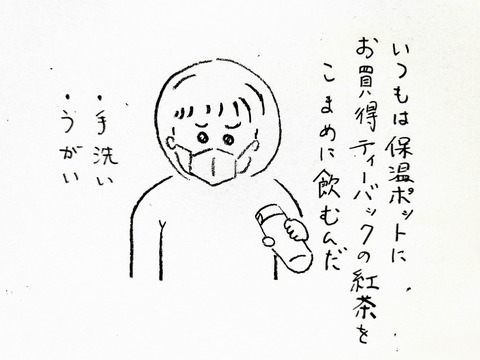 いつもは保温ポットに
お買得ティーバックの紅茶を
こまめに飲むんだ
・手洗い
・うがい